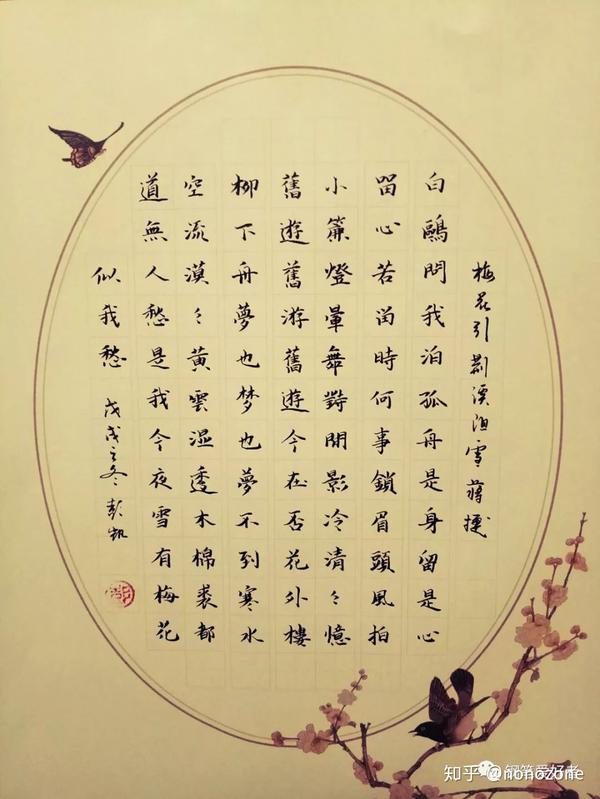 梅花引 荆溪阻雪 蔣捷
白鷗問我泊孤舟是身留是心
留心若留時何事鎖眉頭風拍
小簾燈暈舞對閒影冷清々憶
舊遊舊游舊遊今在否花外樓
柳下舟夢也梦也夢不到寒水
空流漠々黃雲湿透木棉裘都
道無人愁是我今夜雪有梅花
似我愁 戊戌之冬 彭凯
钢笔爱好者
知乎 @nonozone